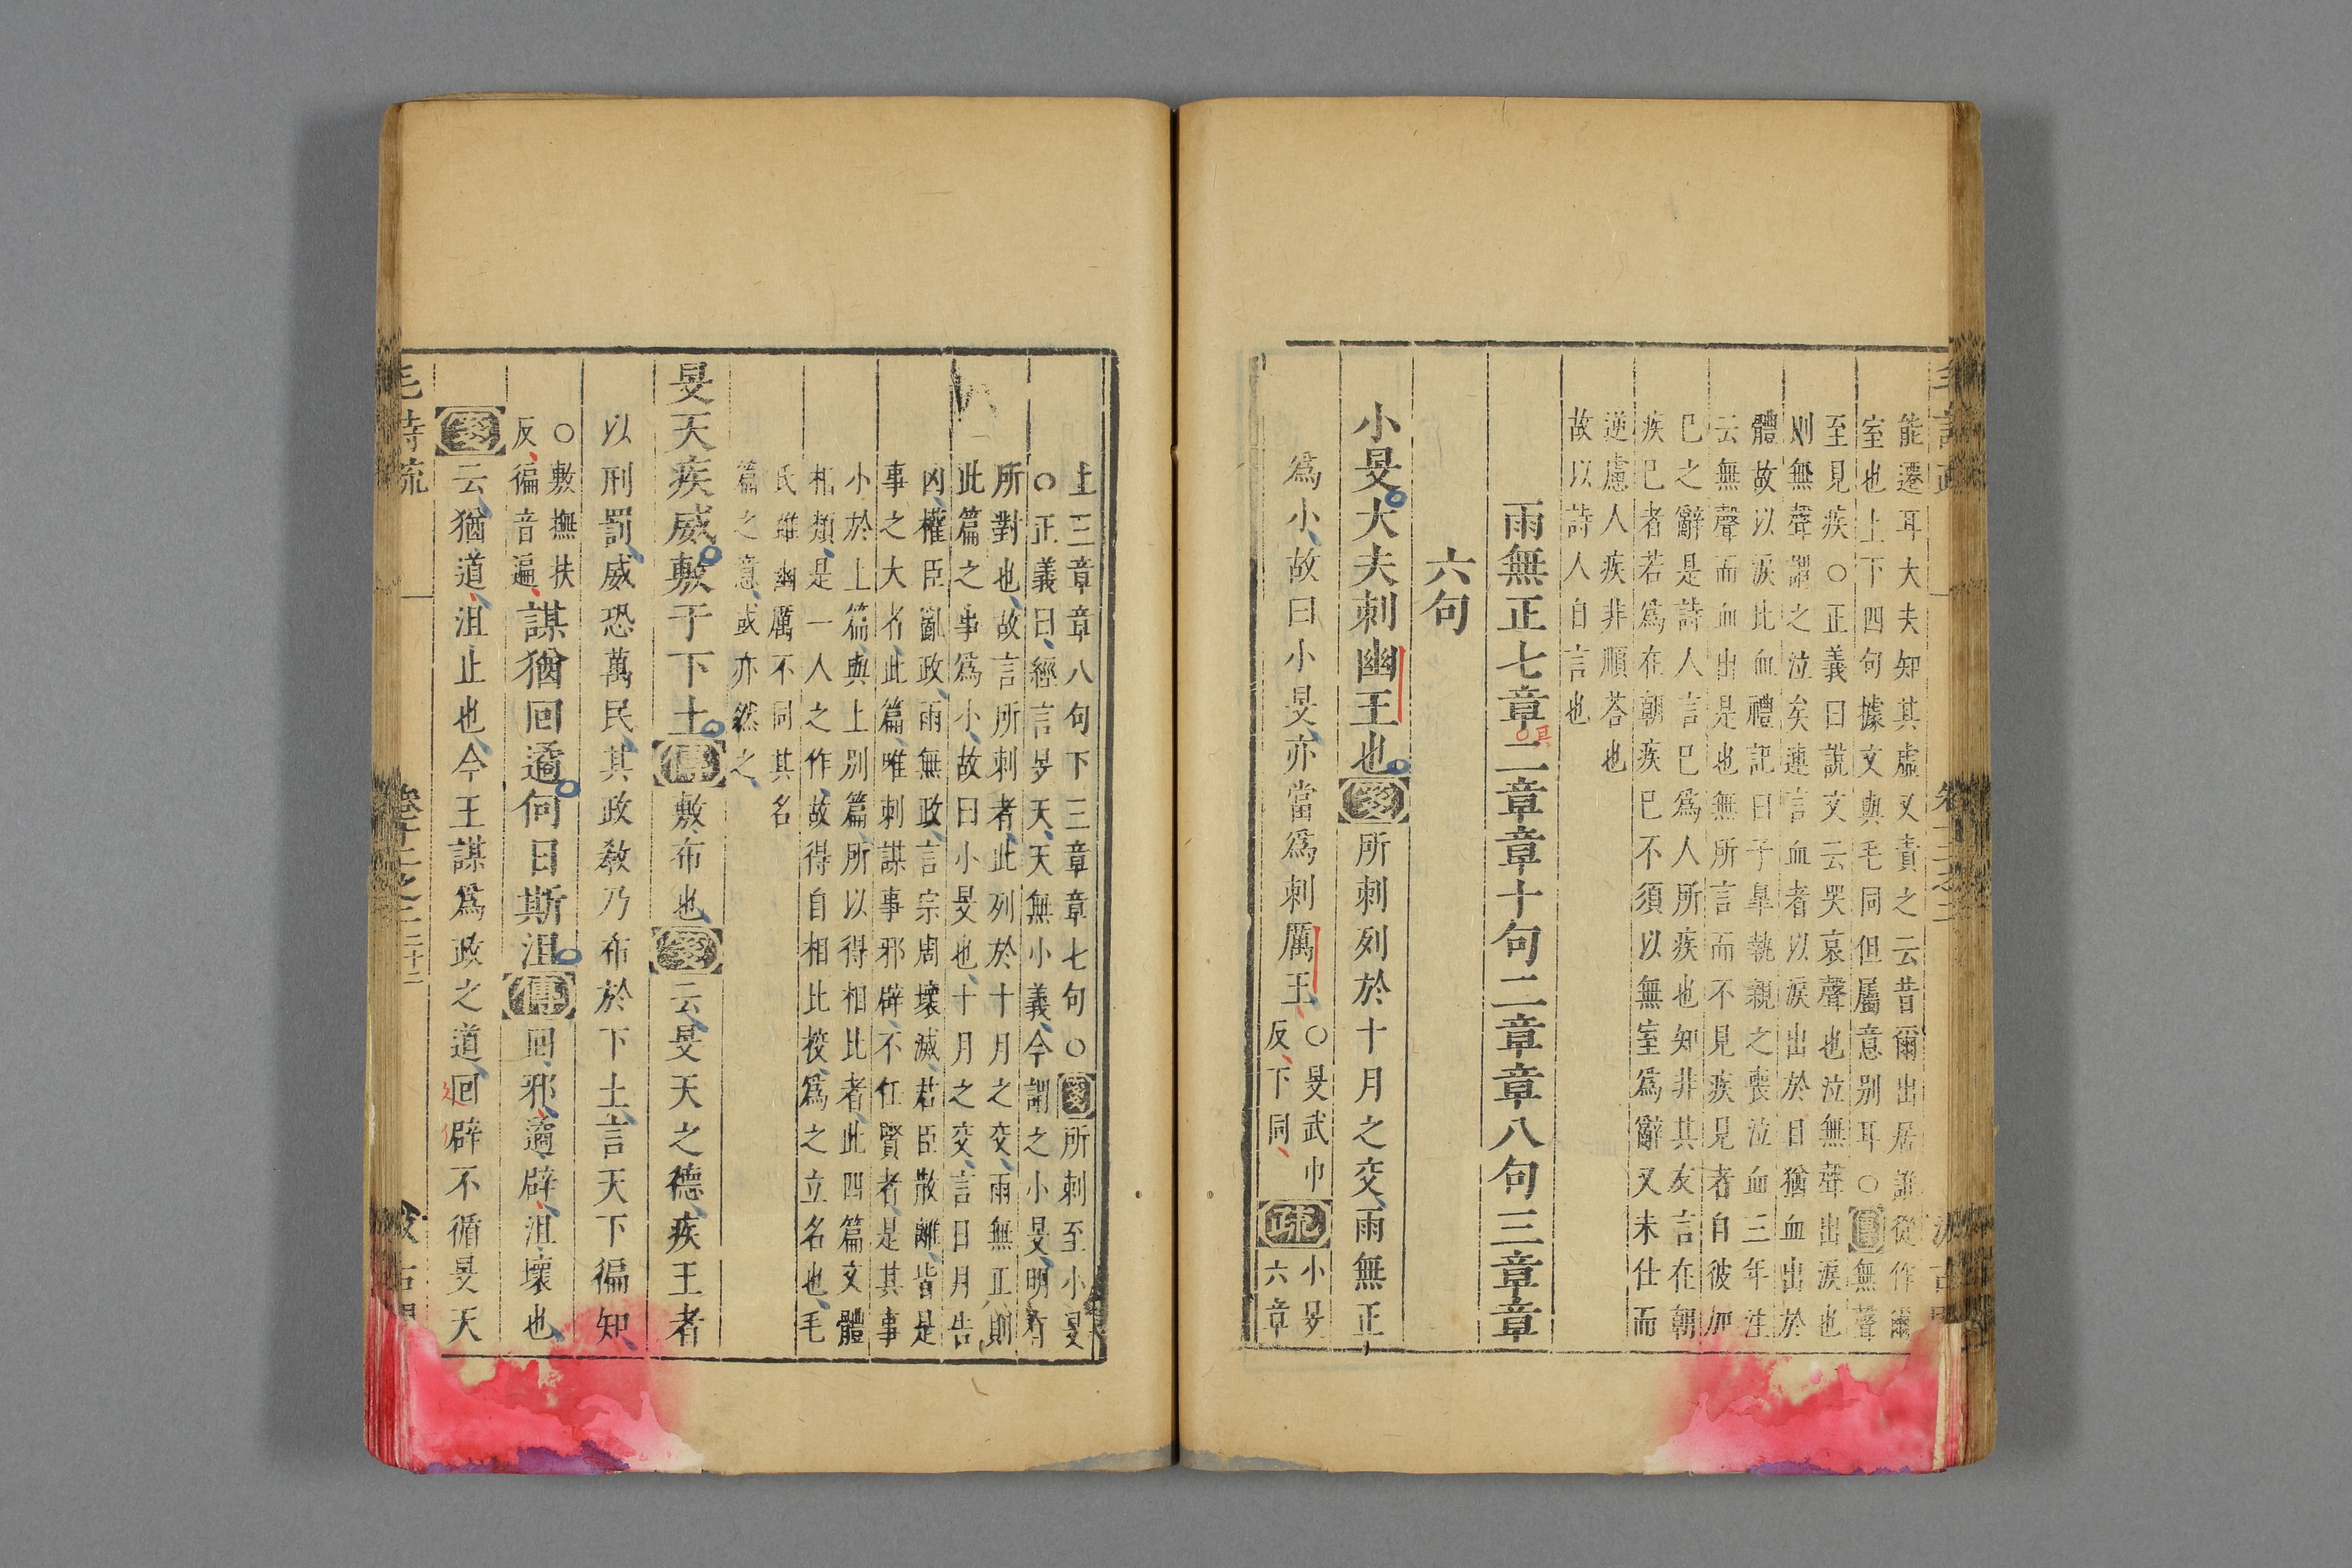 能遷耳大夫知其虛又責之云昔爾出居誰從作爾
室也上下四句據文與毛同但屬意别耳○傳無聲
至見疾○正義曰說文云哭哀聲也泣無聲出淚也
則無聲謂之泣矣連言血者以淚出於目猶血出於
體故以淚比血禮記曰子臯執親之喪泣血三年注
云無聲而血出是也無所言而不見疾見者自彼加
巳之辭是詩人言巳爲人所疾也知非其友言在朝
疾巳者若爲在朝疾巳不須以無室爲辭又未仕而
逆慮人疾非順荅也
故以詩人自言也
雨無正七章二章章十句二章章八句三章章
六句
小旻大夫刺幽王也箋所刺列於十月之交雨無正
爲小故曰小旻亦當爲刺厲王
○旻武巾
反下同
疏
小旻
六章
上三章章八句下三章章七句○箋所刺至小旻
○正義曰經言旻天天無小義今謂之小旻明有
所對也故言所刺者此列於十月之交雨無正則
此篇之事爲小故曰小旻也十月之交言日月告
凶權臣亂政雨無政言宗周壞滅君臣散離皆是
事之大者此篇唯刺謀事邪辟不任賢者是其事
小於上篇與上别篇所以得相比者此四篇文體
相類是一人之作故得自相比挍爲之立名也毛
氏雖幽厲不同其名
篇之意或亦然之
旻天疾威敷于下土傳敷布也箋云旻天之德疾王者
以刑罰威恐萬民其政敎乃布於下土言天下徧知
○敷撫扶
反徧音遍
謀猶回遹何日斯沮傳回邪遹辟沮壞也
箋云猶道沮止也今王謀爲政之道回辟不循旻天
毛詩疏
卷十二之二
二十二